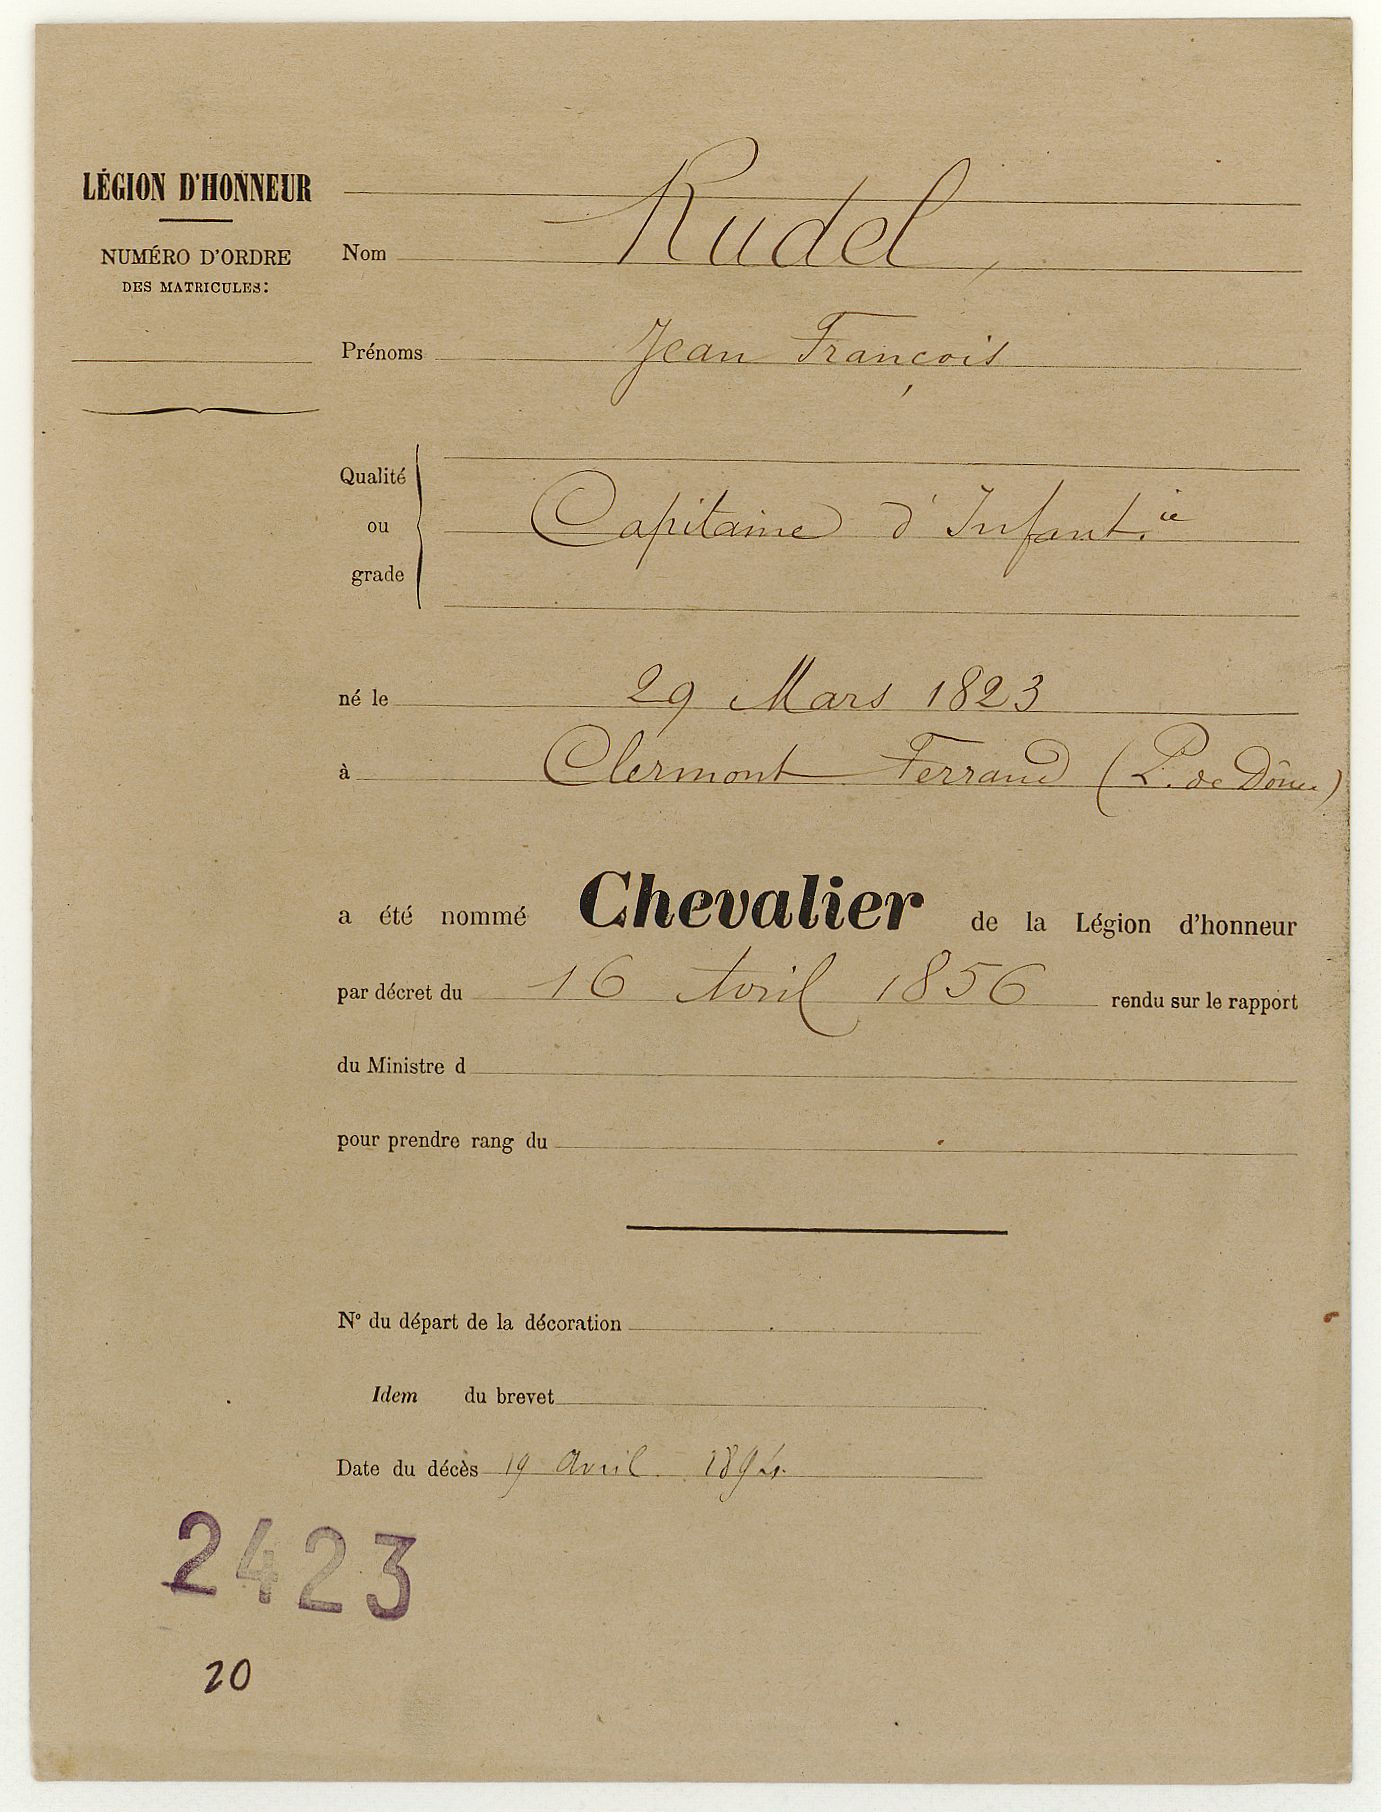 LÉGION D'HONNEUR
NUMÉRO D'ORDRE
DES MATRICULES:
Nom Rudel,
Prénoms Jean François
Qualité
ou Capitaine d'Infant.ie
grade
né le 29 Mars 1823
à Clermont Ferrand (P. de Dôme)
a été nommé Chevalier de la Légion d'honneur
par décret du 16 Avril 1856 rendu sur le rapport
du Ministre d
pour prendre rang du
N° du départ de la décoration
Idem du brevet
Date du décès 19 Avril 1894.
2423
20